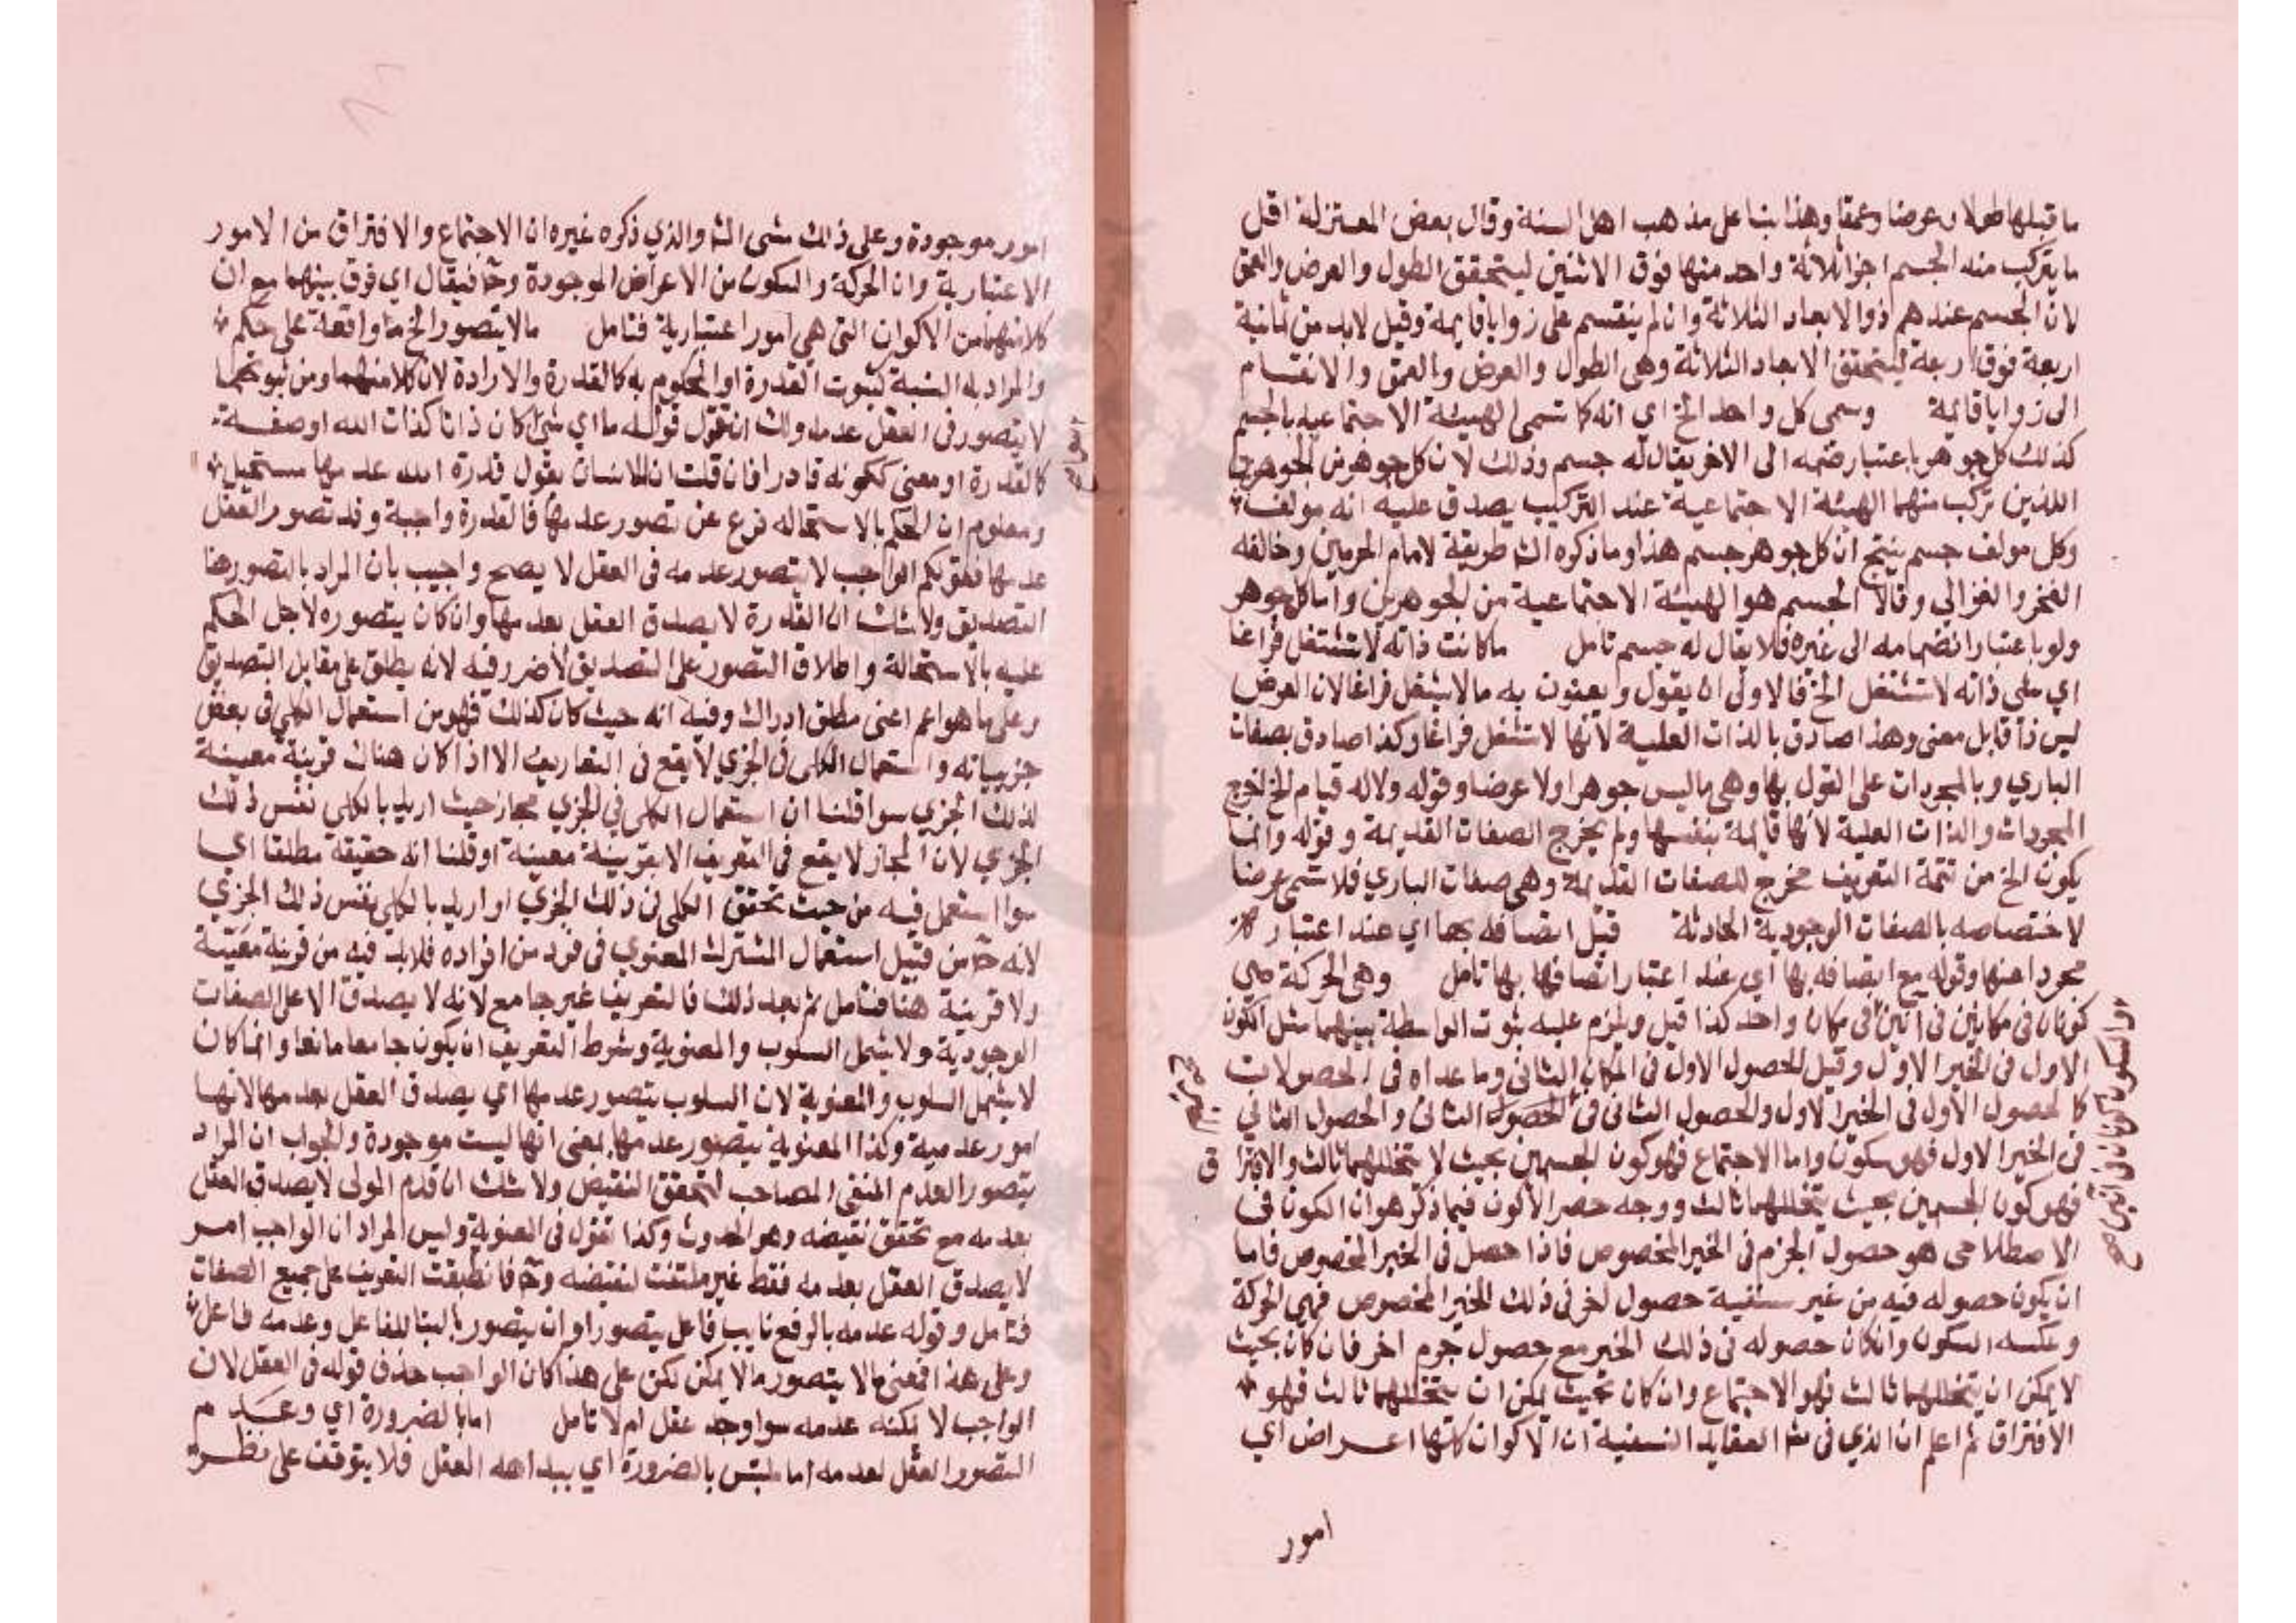 ما قبلها طولا وعرضا وعمقا وهذا بنا على مذهب اهل السنة وقال بعض المعتزلة اقل
ما يتركب منه الجسم اجزا ثلاثة واحد منها فوق الاثنين ليتحقق الطول والعرض والعمق
لان الجسم عندهم ذو الابعاد الثلاثة وان لم ينقسم على زوايا قايمة وقيل لابد من ثمانية
اربعة فوق اربعة ليتحقق الابعاد الثلاثة وهى الطول والعرض والعمق والانقسام
الى زوايا قايمة وسمى كل واحد الخ اي انه كما تسمى الهيئة الاجتماعيه بالجسم
كذلك كل جوهر باعتبار ضمه الى الاخر يقال له جسم وذلك لان كل جوهر من الجوهرين
اللذين تركب منهما الهيئة الاجتماعية عند التركيب يصدق عليه انه مولف
وكل مولف جسم ينتج ان كل جوهر جسم هذا وما ذكره الش طريقة لامام الحرمين وخالفه
الفخر والغزالي وقالا الجسم هو الهيئة الاجتماعية من الجوهرين واما كل جوهر
ولو باعتبار انضمامه الى غيره فلا يقال له جسم تامل ما كانت ذاته لا تشتغل فراغا
اي على ذاته لا تشتغل الخ فالاولى ان يقول ويعنون به ما لا يشغل فراغا لان العرض
ليس ذا قابل معنى وهذا صادق بالذات العلية لانها لا تشغل فراغا وكذا صادق بصفات
الباري وبالمجردات على القول بها وهى ما ليس جوهرا ولا عرضا وقوله ولا له قيام الخ لخرج
المجردات والذات العلية لانها قايمة بنفسها ولم يخرج الصفات القديمة وقوله وانما
يكون الخ من تتمة التعريف مخرج للصفات القديمة وهى صفات الباري فلا تسمى عرضا
لاختصاصه بالصفات الوجودية الحادثة قبل اتصافه بها اي عند اعتبار
مجردا عنها وقوله مع اتصافه بها اي عند اعتبار اتصافها بها تامل وهى الحركة هى
كونان فى مكانين فى انين فى مكان واحد كذا قيل ويلزم عليه ثبوت الواسطة بينهما مثل الكون
والسكون كونان فى انين صح
الاول فى الحيز الاول وقيل الحصول الاول فى المكان الثانى وما عداه فى الحصولات
كالحصول الاول فى الحيز الاول والحصول الثانى فى الحصول الثانى والحصول الثاني
فى الحيز الاول فهو سكون واما الاجتماع فهو كون الجسمين بحيث لا يتخللهما ثالث والافترا ق
فهو كون الجسمين بحيث يتخللهما ثالث ووجه حصر الاكون فيما ذكر هو ان الكون فى
الاصطلاحى هو حصول الجرم فى الحيز المخصوص فاذا حصل فى الحيز المخصوص فاما
ان يكون حصوله فيه من غير حصول اخر فى ذلك الحيز المخصوص فهي الحركة
وعكسه السكون وان كان حصوله فى ذلك الحيز مع حصول جرم اخر فان كان بحيث
لا يمكن ان يتخللهما ثالث فهو الاجتماع وان كان بحيث يمكن ان يتخللهما ثالث فهو
الافتراق ثم اعلم ان الذي فى ش العقايد النسفية ان الاكوان كلها اعراض اي
امور
امور موجودة وعلى ذلك مشى الش والذي ذكره غيره ان الاجتماع والافتراق من الامور
الاعتبارية وان الحركة والسكون من الاعراض الموجودة وح فيقال اي فرق بينهما مع ان
كلا منهما من الاكوان التى هي امور اعتبارية فتامل مالا يتصور الخ ما واقعة على حكم
والمراد به النسبة كثبوت القدرة او المحكوم به كالقدرة والارادة لان كلا منهما ومن ثبوتهما
لا يتصور فى العقل عدمه ولك ان تقول قوله ما اي شئ كان ذاتا كذات الله او صفة
كالقدرة او معنى ككونه قادرا فان قلت ان الانسان يقول قدرة الله عدمها مستحيل
ومعلوم ان الحكم بالاستحاله فرع عن تصور عدمها فالقدرة واجبة وقد تصور العقل
عدمها فقولكم الواجب لا يتصور عدمه فى العقل لا يصح واجيب بان المراد بالتصور هنا
التصديق ولا شك ان القدرة لا يصدق العقل بعدمها وان كان يتصوره لاجل الحكم
عليه بالاستحالة واطلاق التصور على التصديق لا ضرر فيه لانه يطلق على مقابل التصديق
وعلى ما هو اعم اعنى مطلق ادراك وفيه انه حيث كان كذلك فهو من استعمال الكلي فى بعض
جزيياته واستعمال الكلى فى الجزي لا يقع فى التعاريف الا اذا كان هناك قرينة معينة
لذلك الجزي سوا قلنا ان استعمال الكلى في الجزي مجاز حيث اريد بالكلى نفس ذلك
الجزي لان المجاز لا يقع فى التعريف الا بقرينة معينة او قلنا انه حقيقة مطلقا اي
سوا استعمل فيه من حيث تحقق الكلى فى ذلك الجزي او اريد بالكلي نفس ذلك الجزي
لانه ح من قبيل استعمال المشترك المعنوي فى فرد من افراده فلابد فيه من قرينة معينة
ولا قرينة هنا فتامل ثم بعد ذلك فالتعريف غير جامع لانه لا يصدق الا على الصفات
الوجودية ولا يشمل السلوب والمعنوية وشرط التعريف ان يكون جامعا مانعا وانما كان
لا يشمل السلوب والمعنوية لان السلوب يتصور عدمها اي يصدق العقل بعدمها لانها
امور عدمية وكذا المعنوية يتصور عدمها بمعنى انها ليست موجودة والجواب ان المراد
يتصور العدم المنفى المصاحب لتحقق النقيض ولا شك ان قدم المولى لا يصدق العقل
بعدمه مع تحقق نقيضه وهو الحدوث وكذا تقول فى المعنوية وليس المراد ان الواجب امر
لا يصدق العقل بعدمه فقط غير ملتفت لنقيضه وح فانطبقت التعريف على جميع الصفات
فتامل وقوله عدمه بالرفع نايب فاعل يتصور او ان يتصور بالبنا للفاعل وعدمه فاعل
وعلى هذا فمعنى مالا يتصور مالا يمكن لكن على هذا كان الواجب حذف قوله فى العقل لان
الواجب لا يمكنه عدمه سوا وجد عقل ام لا تامل اما بالضرورة اي وعدم
التصور العقل لعدمه اما ملتبس بالضرورة اي ببداهه العقل فلا يتوقف على نظر